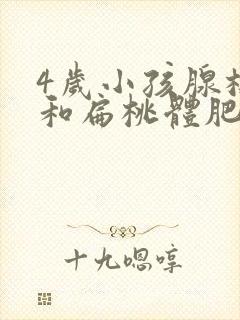 4歲小孩腺樣
和扁桃體肥
十九嗯哼